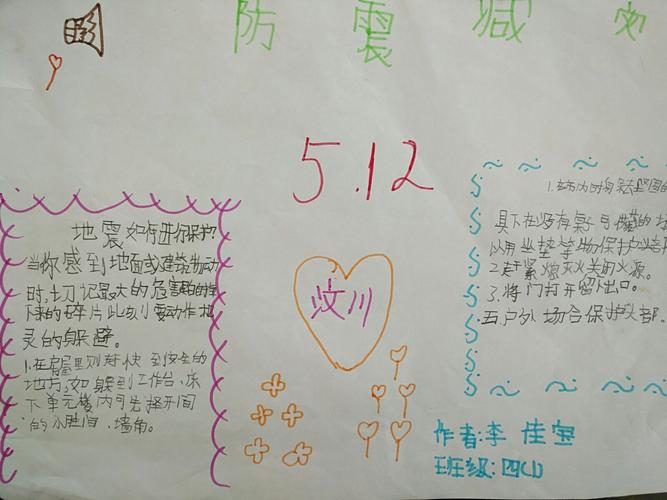 防震减灾
5.12
汶川
地震如何进行保护?
当你感到地面或建筑物动
时,切记最大的危害的
下来的碎片此刻要动作
灵的躲避。
1.在房屋里则赶快到安全的
地方,如躲到工作台、床
下单元楼内可先择开间
的小胜间、墙角。
1.室内时躲
具下在没有桌子可
以用坐垫等物保护
2.赶紧熄灭火关闭火源。
3.将门打开留下出口。
五.户外场合保护头部。
作者:李佳宝
班级:四(1)